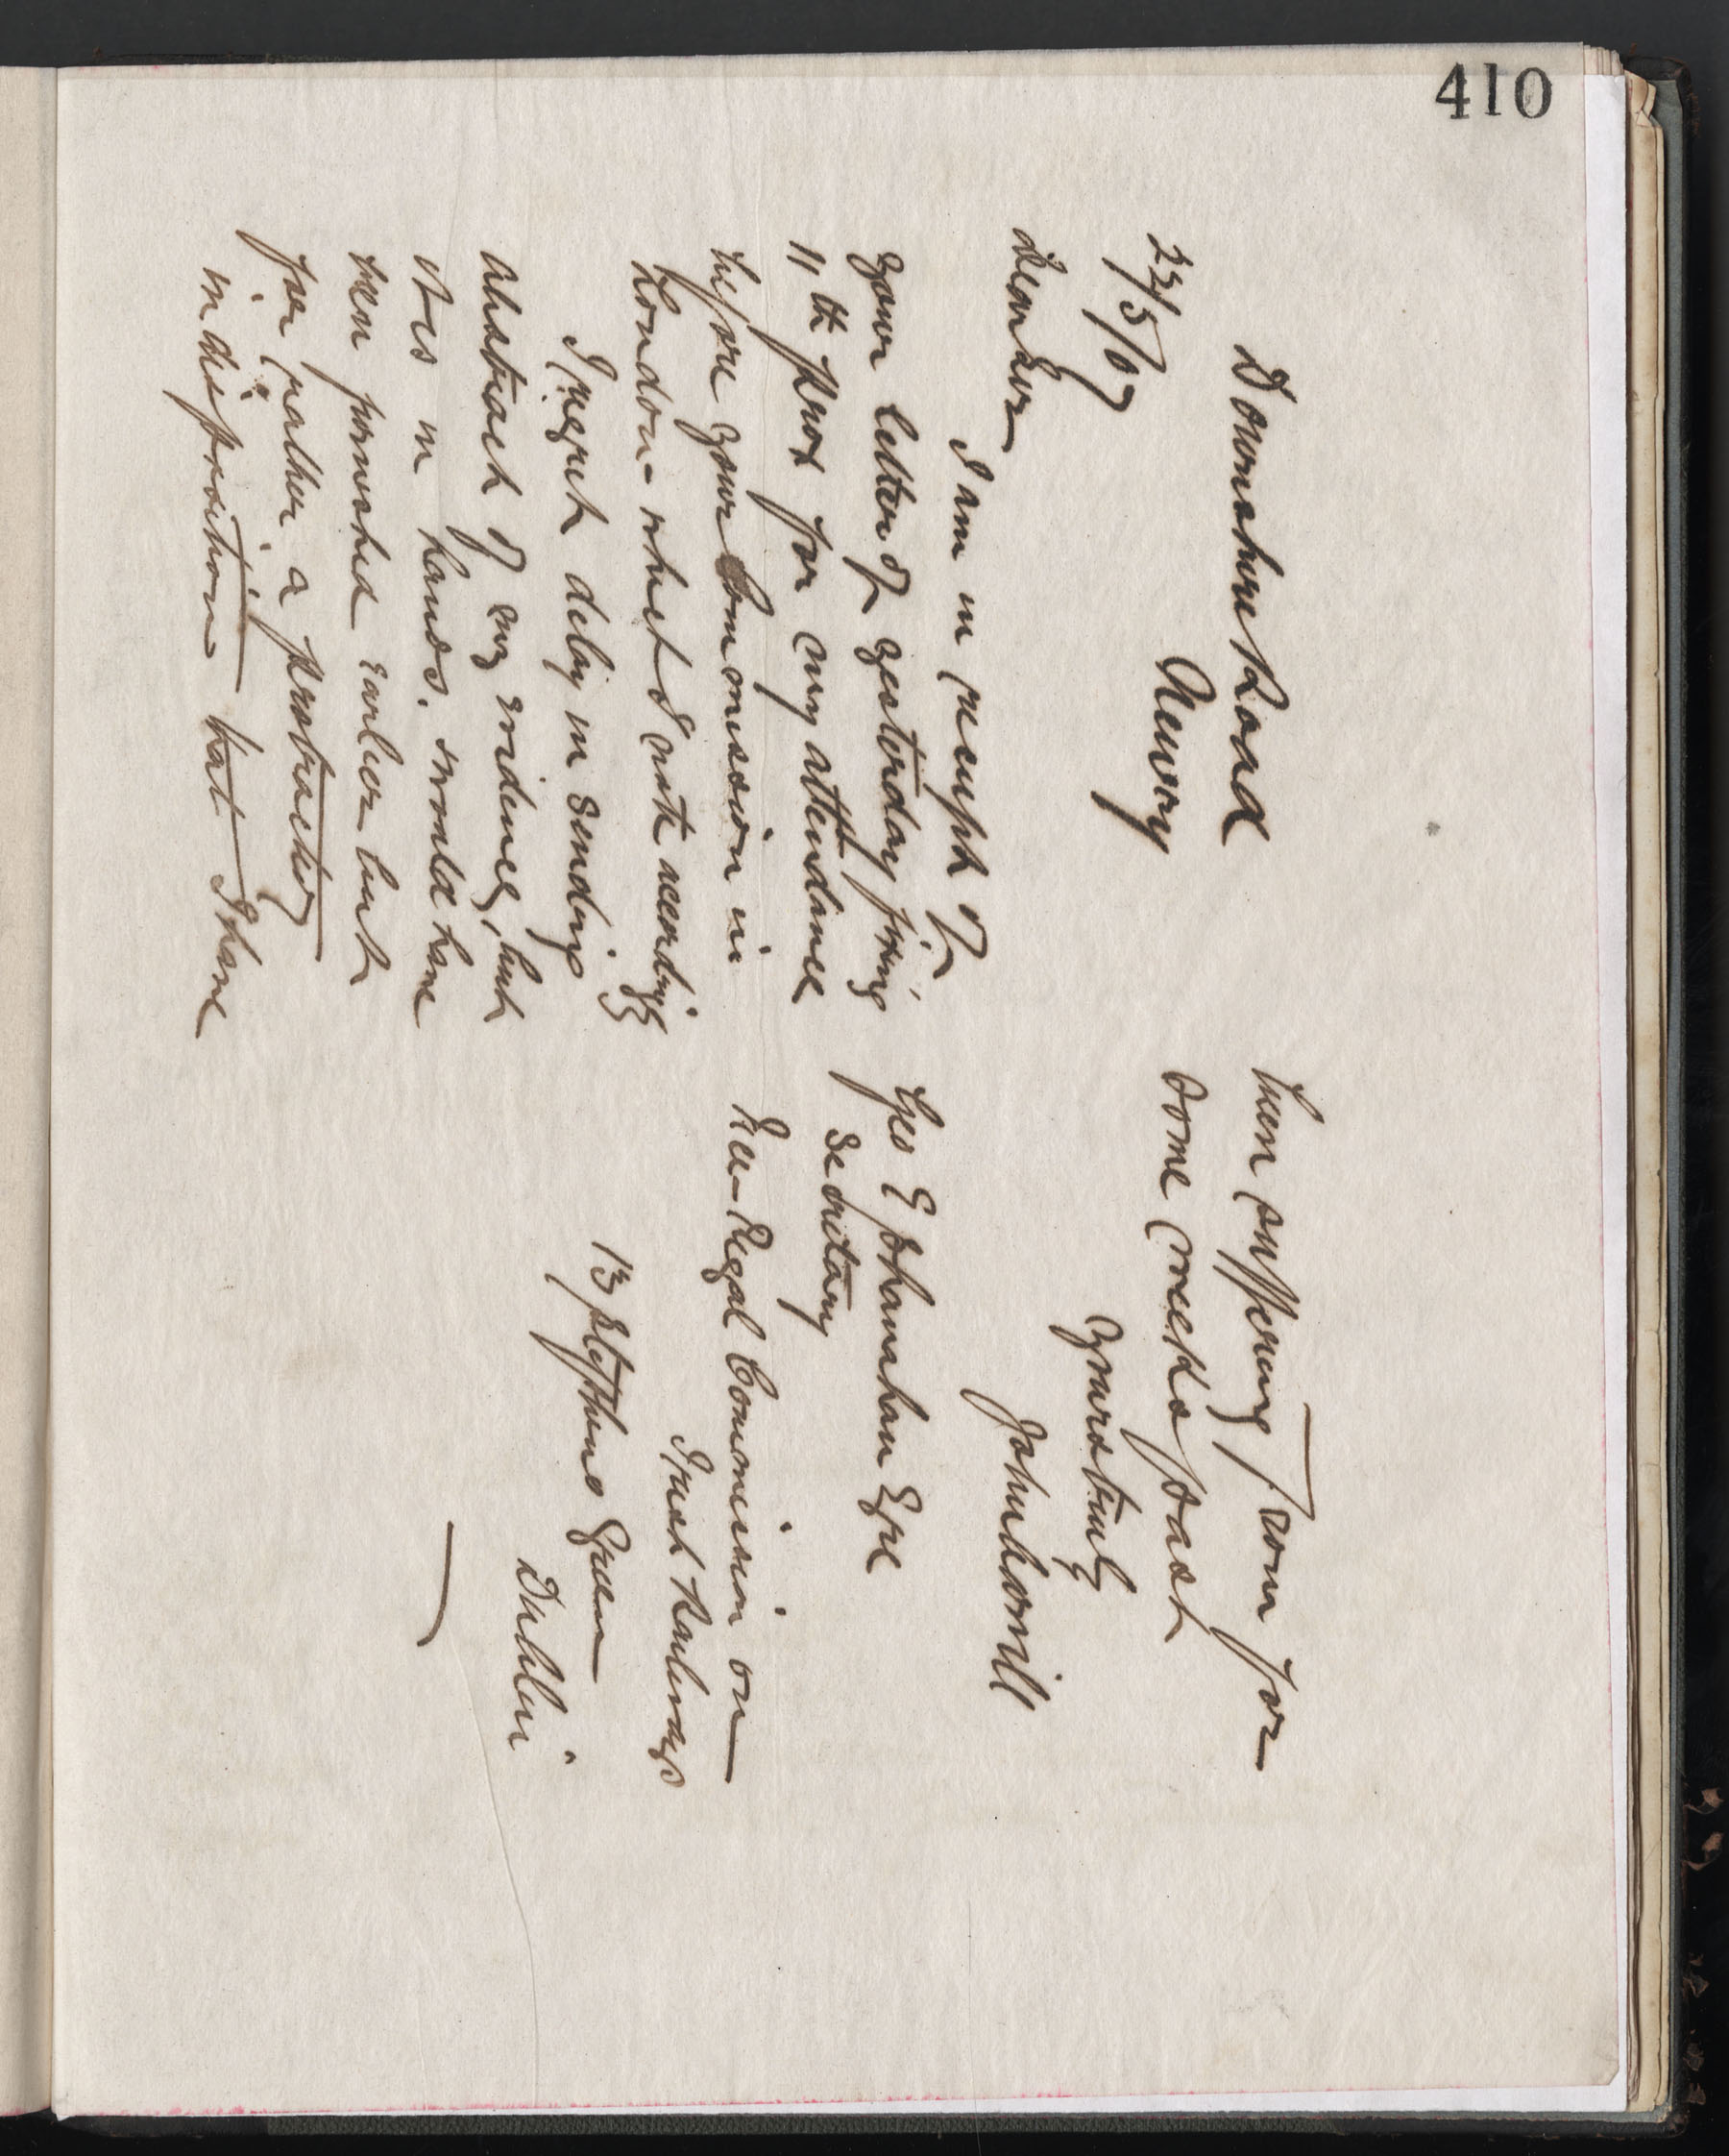 410
Downshire Road
Newry
23/5/07
Dear Sir
I am in receipt of
your letter of yesterday fixing
11th prox for my attendance
before your Commission in
London - which I note accordingly
I regret delay in sending
abstract of my evidence, but
it is in hands. would have
been furnished earlier but
for rather a protracted
indisposition that I have
been suffering from for
some weeks past
Yours truly
Geo E Shanahan Esqe
Secretary
Vice-Regal Commission on
Irish Railways
13 Stephens Green
Dublin